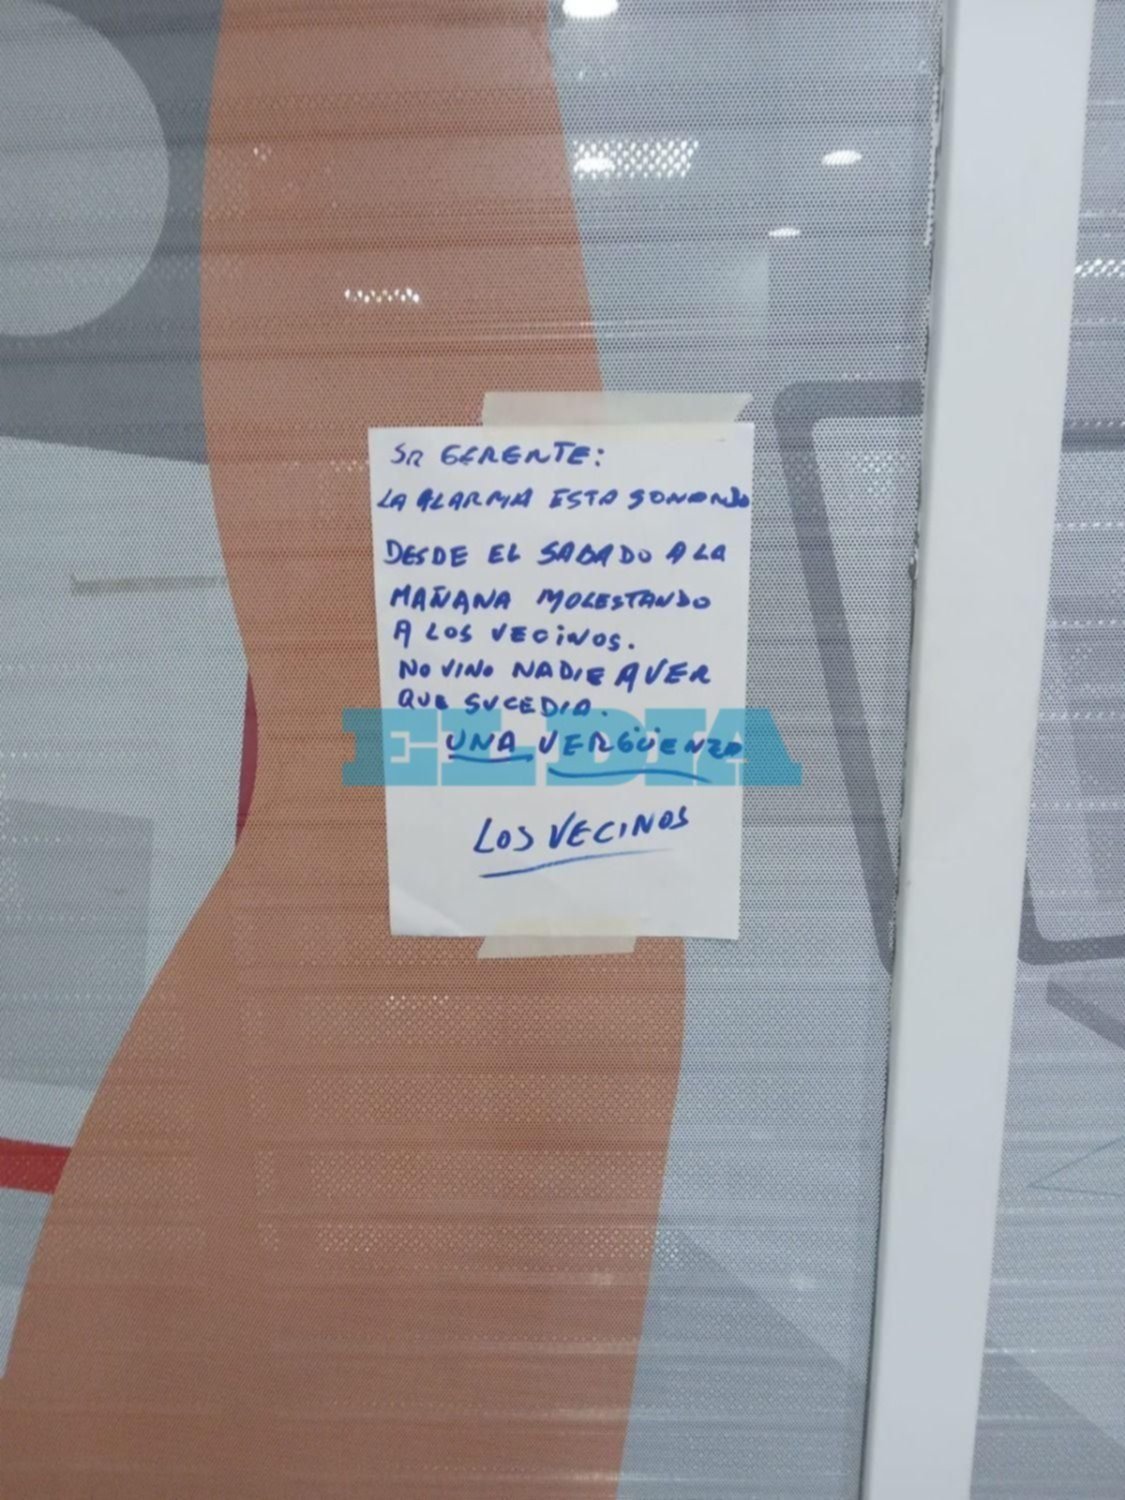 SR GERENTE:
LA ALARMA ESTA SONANDO
DESDE EL SABADO A LA
MAÑANA MOLESTANDO
A LOS VECINOS.
NO VINO NADIE A VER
QUE SUCEDIA.
UNA VERGÜENZA
EL DIA
LOS VECINOS